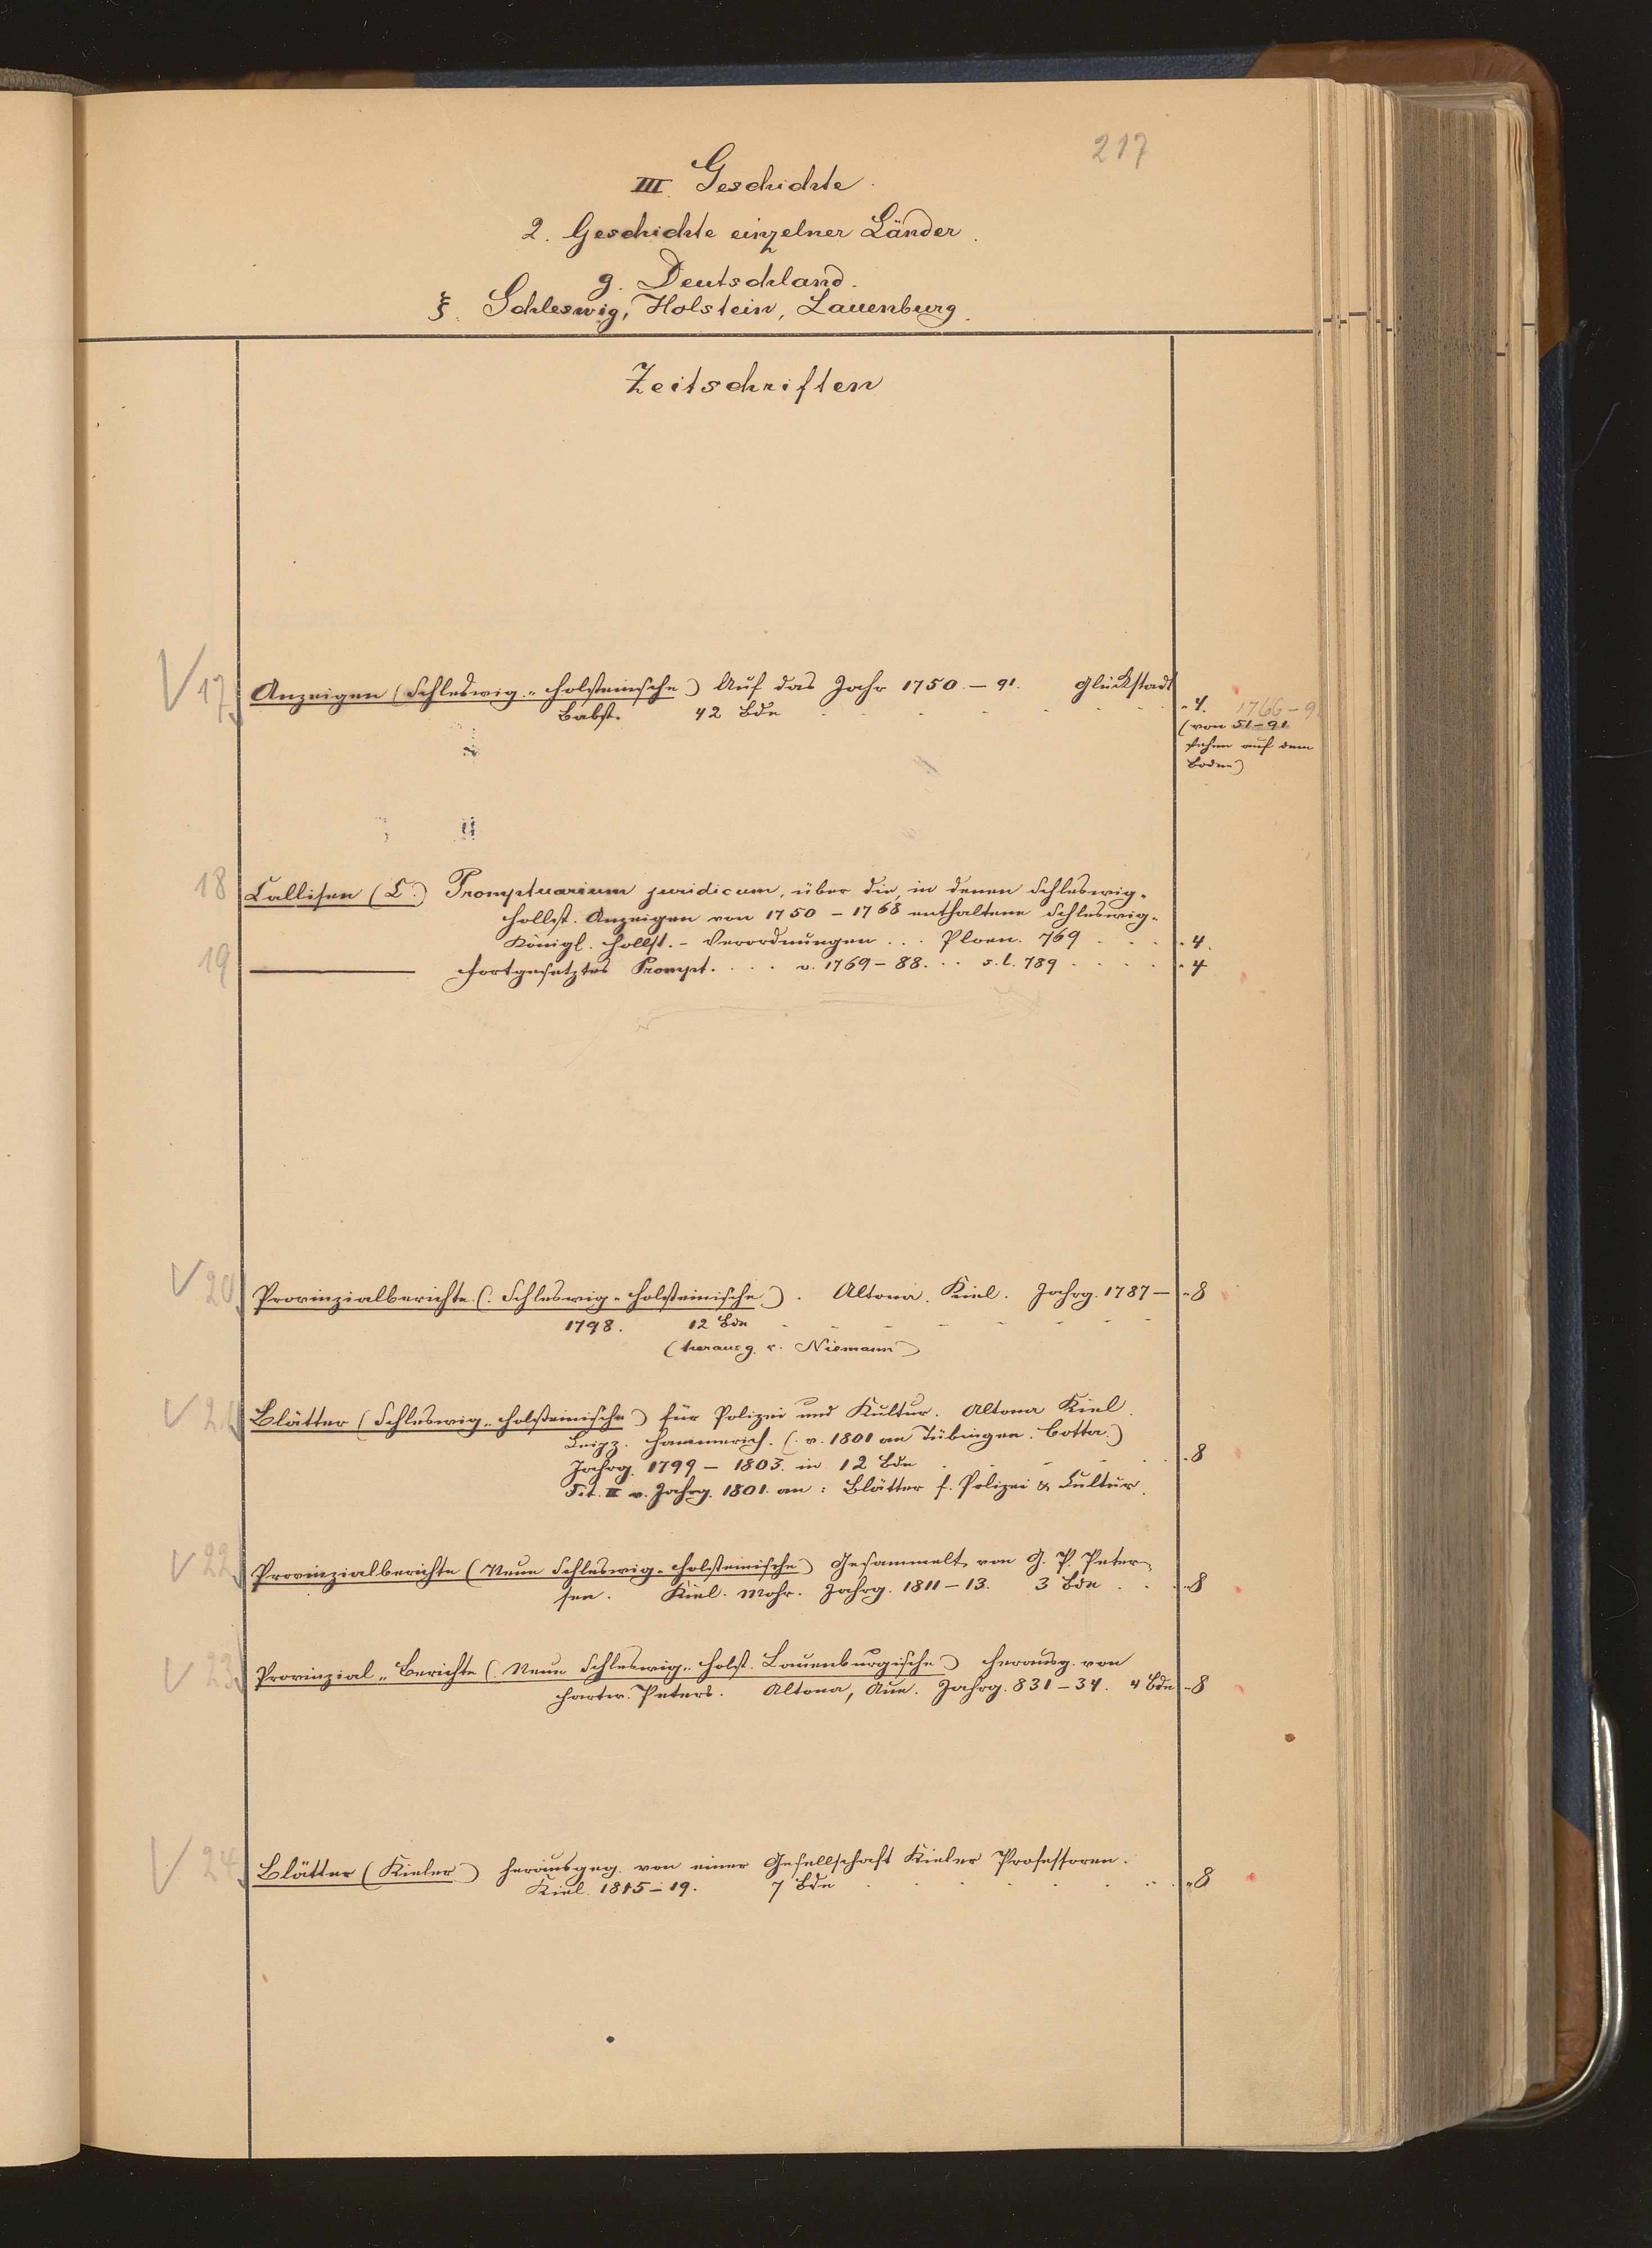 217
III. Geschichte.
2. Geschichte einzelner Länder.
g. Deutschland.
ξ. Schleswig, Holstein, Lauenburg.
Zeitschriften
V 17. Anzeigen (Schleswig-Holsteinische) Auf das Jahr 1750.–91. Glückstadt
Babst. 42 Bde - - - - - - - "4. 1766–9
(von 51–91
stehen auf dem
Boden)
18 Callisen (C.) Promptuarium juridicum, über die, in denen Schleswig-
Hollst. Anzeigen von 1750–1768 enthaltene Schleswig-
Königl. Hollst.-Verordnungen... Ploen. 769 . . . . "4.
19 ——— Fortgesetztes Prompt. . . . v. 1769–88. . . s. l. 789 . . . . . "4
V 20. Provinzialberichte (Schleswig-Holsteinische). Altona. Kiel. Jahrg. 1787– "8
1798. 12 Bde - - - - - - - -
(herausg. v. Niemann)
V 21. Blätter (Schleswig-Holsteinische) für Polizei und Kultur. Altona Kiel.
Leipz. Hammerich. (v. 1801 an Tübingen. Cotta.)
Jahrg. 1799–1803. in 12 Bde . . . . . "8
Tit. II v. Jahrg. 1801. an: Blätter f. Polizei & Cultur.
V 22. Provinzialberichte (Neue Schleswig-Holsteinische) Gesammelt von G. P. Peter-
sen. Kiel. Mohr. Jahrg. 1811–13. 3 Bde . . . "8
V 23. Provinzial-Berichte (Neue Schleswig-Holst. Lauenburgische) Herausg. von
Hartw. Peters. Altona, Aue. Jahrg. 831–34. 4 Bde "8
V 24. Blätter (Kieler) herausgeg. von einer Gesellschaft Kieler Professoren.
Kiel 1815–19. 7 Bde . . . . . . . "8